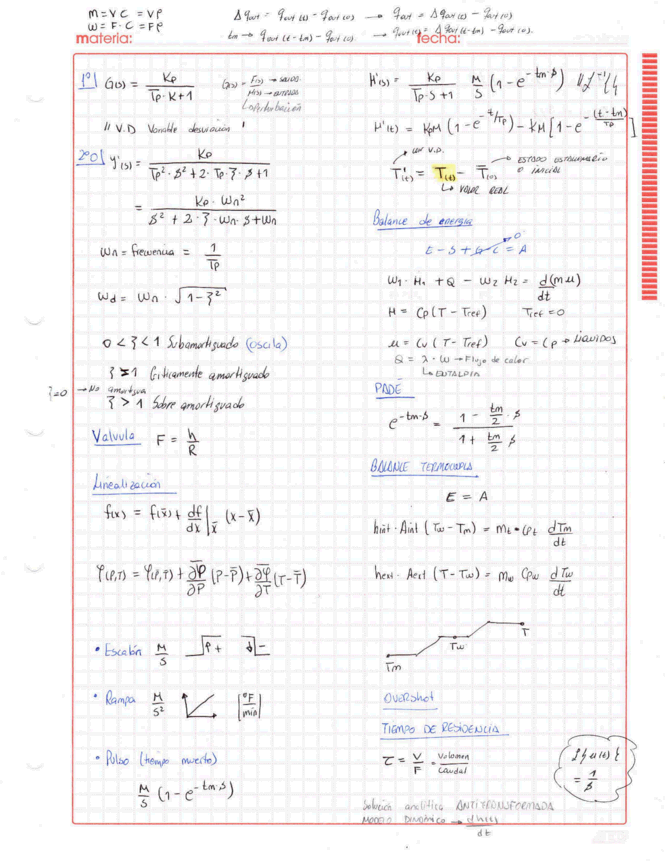 m = V C = Vρ
w = F·C = Fρ
Δq̇out = q̇out (t) - q̇out (0) → q̇out = Δq̇out (t) - q̇out (0)
tm → q̇out (t-tm) - q̇out (0). → q̇out (t) = Δq̇out (t-tm) - q̇out (0).
materia: fecha:
1º| G(s) = Kp / Tp·K+1
G(s) = F(s) → salida. / M(s) → entrada
↳ perturbación
"V.D Variable desviación '
2º0| y'(s) = Kp / Tp²·s² + 2·Tp·ξ·s + 1
= Kp·Wn² / s² + 2·ξ·Wn·s + Wn
Wn = frecuencia = 1/Tp
Wd = Wn·√1-ξ²
0 < ξ < 1 Subamortiguado (oscila)
ξ = 1 Criticamente amortiguado
ξ=0 → No amortigua
ξ > 1 Sobre amortiguado
Valvula F = h/R
Linealización
f(x) = f(x̄) + df/dx |x̄ (x - x̄)
φ(P,T) = φ(P̄,T̄) + ∂φ/∂P (P-P̄) + ∂φ/∂T (T-T̄)
• Escalón M/S + -
• Rampa M/S² |ºF/min|
• Pulso (tiempo muerto)
M/S (1 - e^-tm·s)
H'(s) = Kp / Tp·s+1 M/S (1 - e^-tm·s) // L⁻¹{
H'(t) = KpM (1 - e^-t/Tp) - KM [1 - e^-(t-tm)/Tp]
V.D.
T'(t) = T(t) - T̄(0) → ESTADO ESTACIONARIO O INICIAL
↳ VALOR REAL
Balance de energia
E - S + G - C = A
0
W1·H1 + Q - W2 H2 = d(mu)/dt
H = Cp(T - Tref) Tref = 0
u = Cv (T - Tref) Cv = Cp → LIQUIDOS
Q = λ·W → Flujo de calor
↳ ENTALPIA
PADÉ
e^-tm·s = 1 - tm/2·s / 1 + tm/2 s
BALANCE TERMOCUPLA
E = A
hint·Aint (Tw - Tm) = mt·Cpt dTm/dt
hext·Aext (T - Tw) = mw Cpw dTw/dt
Tm Tw T
OVERSHOT
TIEMPO DE RESIDENCIA
τ = V/F = Volumen/Caudal
L{u(t)} = 1/s
Solución analítica ANTITRANSFORMADA
MODELO DINÁMICO → dh(t)/dt